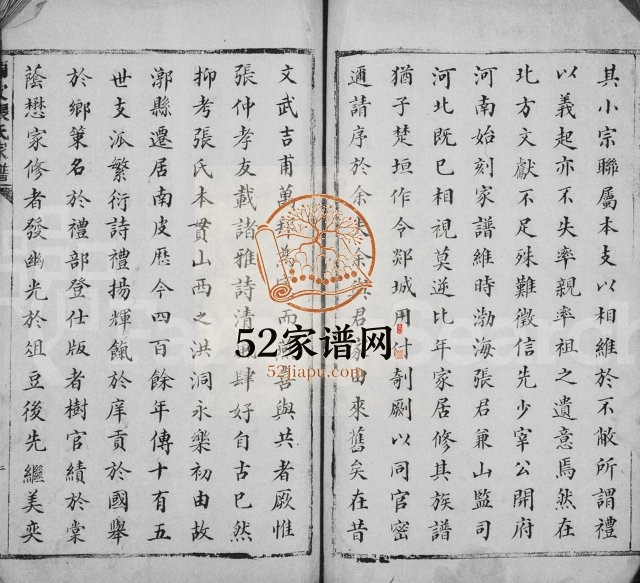 其小宗聯屬本支以相維於不敝所謂禮
以義起亦不失率親率祖之遺意焉然在
北方文獻不足殊難徵信先少宰公開府
河南始刻家譜維時渤海張君兼山監司
河北既已相視莫逆比年家居修其族譜
猶子楚垣作令郯城用付剞劂以同官密
邇請序於余余君家由來舊矣在昔
文武吉甫萬邦為而喜與共者厥惟
張仲孝友載諸雅詩清肆好自古已然
抑考張氏本貫山西之洪洞永樂初由故
漷縣遷居南皮歷今四百餘年傳十有五
世支派繁衍詩禮揚輝餼於庠貢於國舉
於鄉秉名於禮部登仕版者樹官績於棠
蔭懋家修者發幽光於俎豆後先繼美奕
52家谱网
52jiapu.com